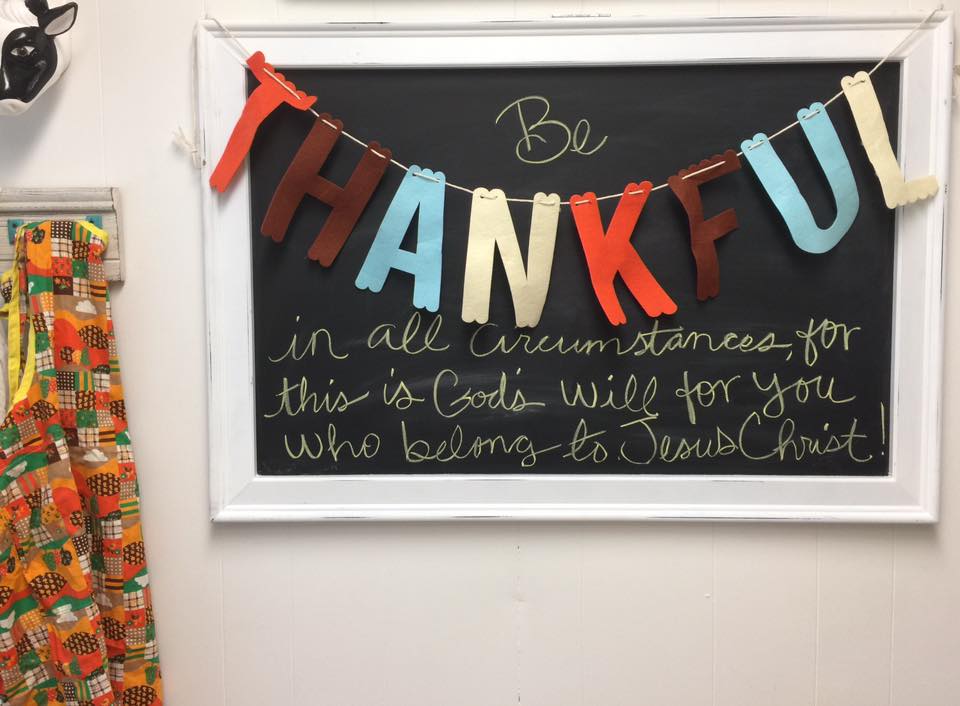 Be
THANKFUL
in all circumstances, for
this is God's will for you
who belong to Jesus Christ!